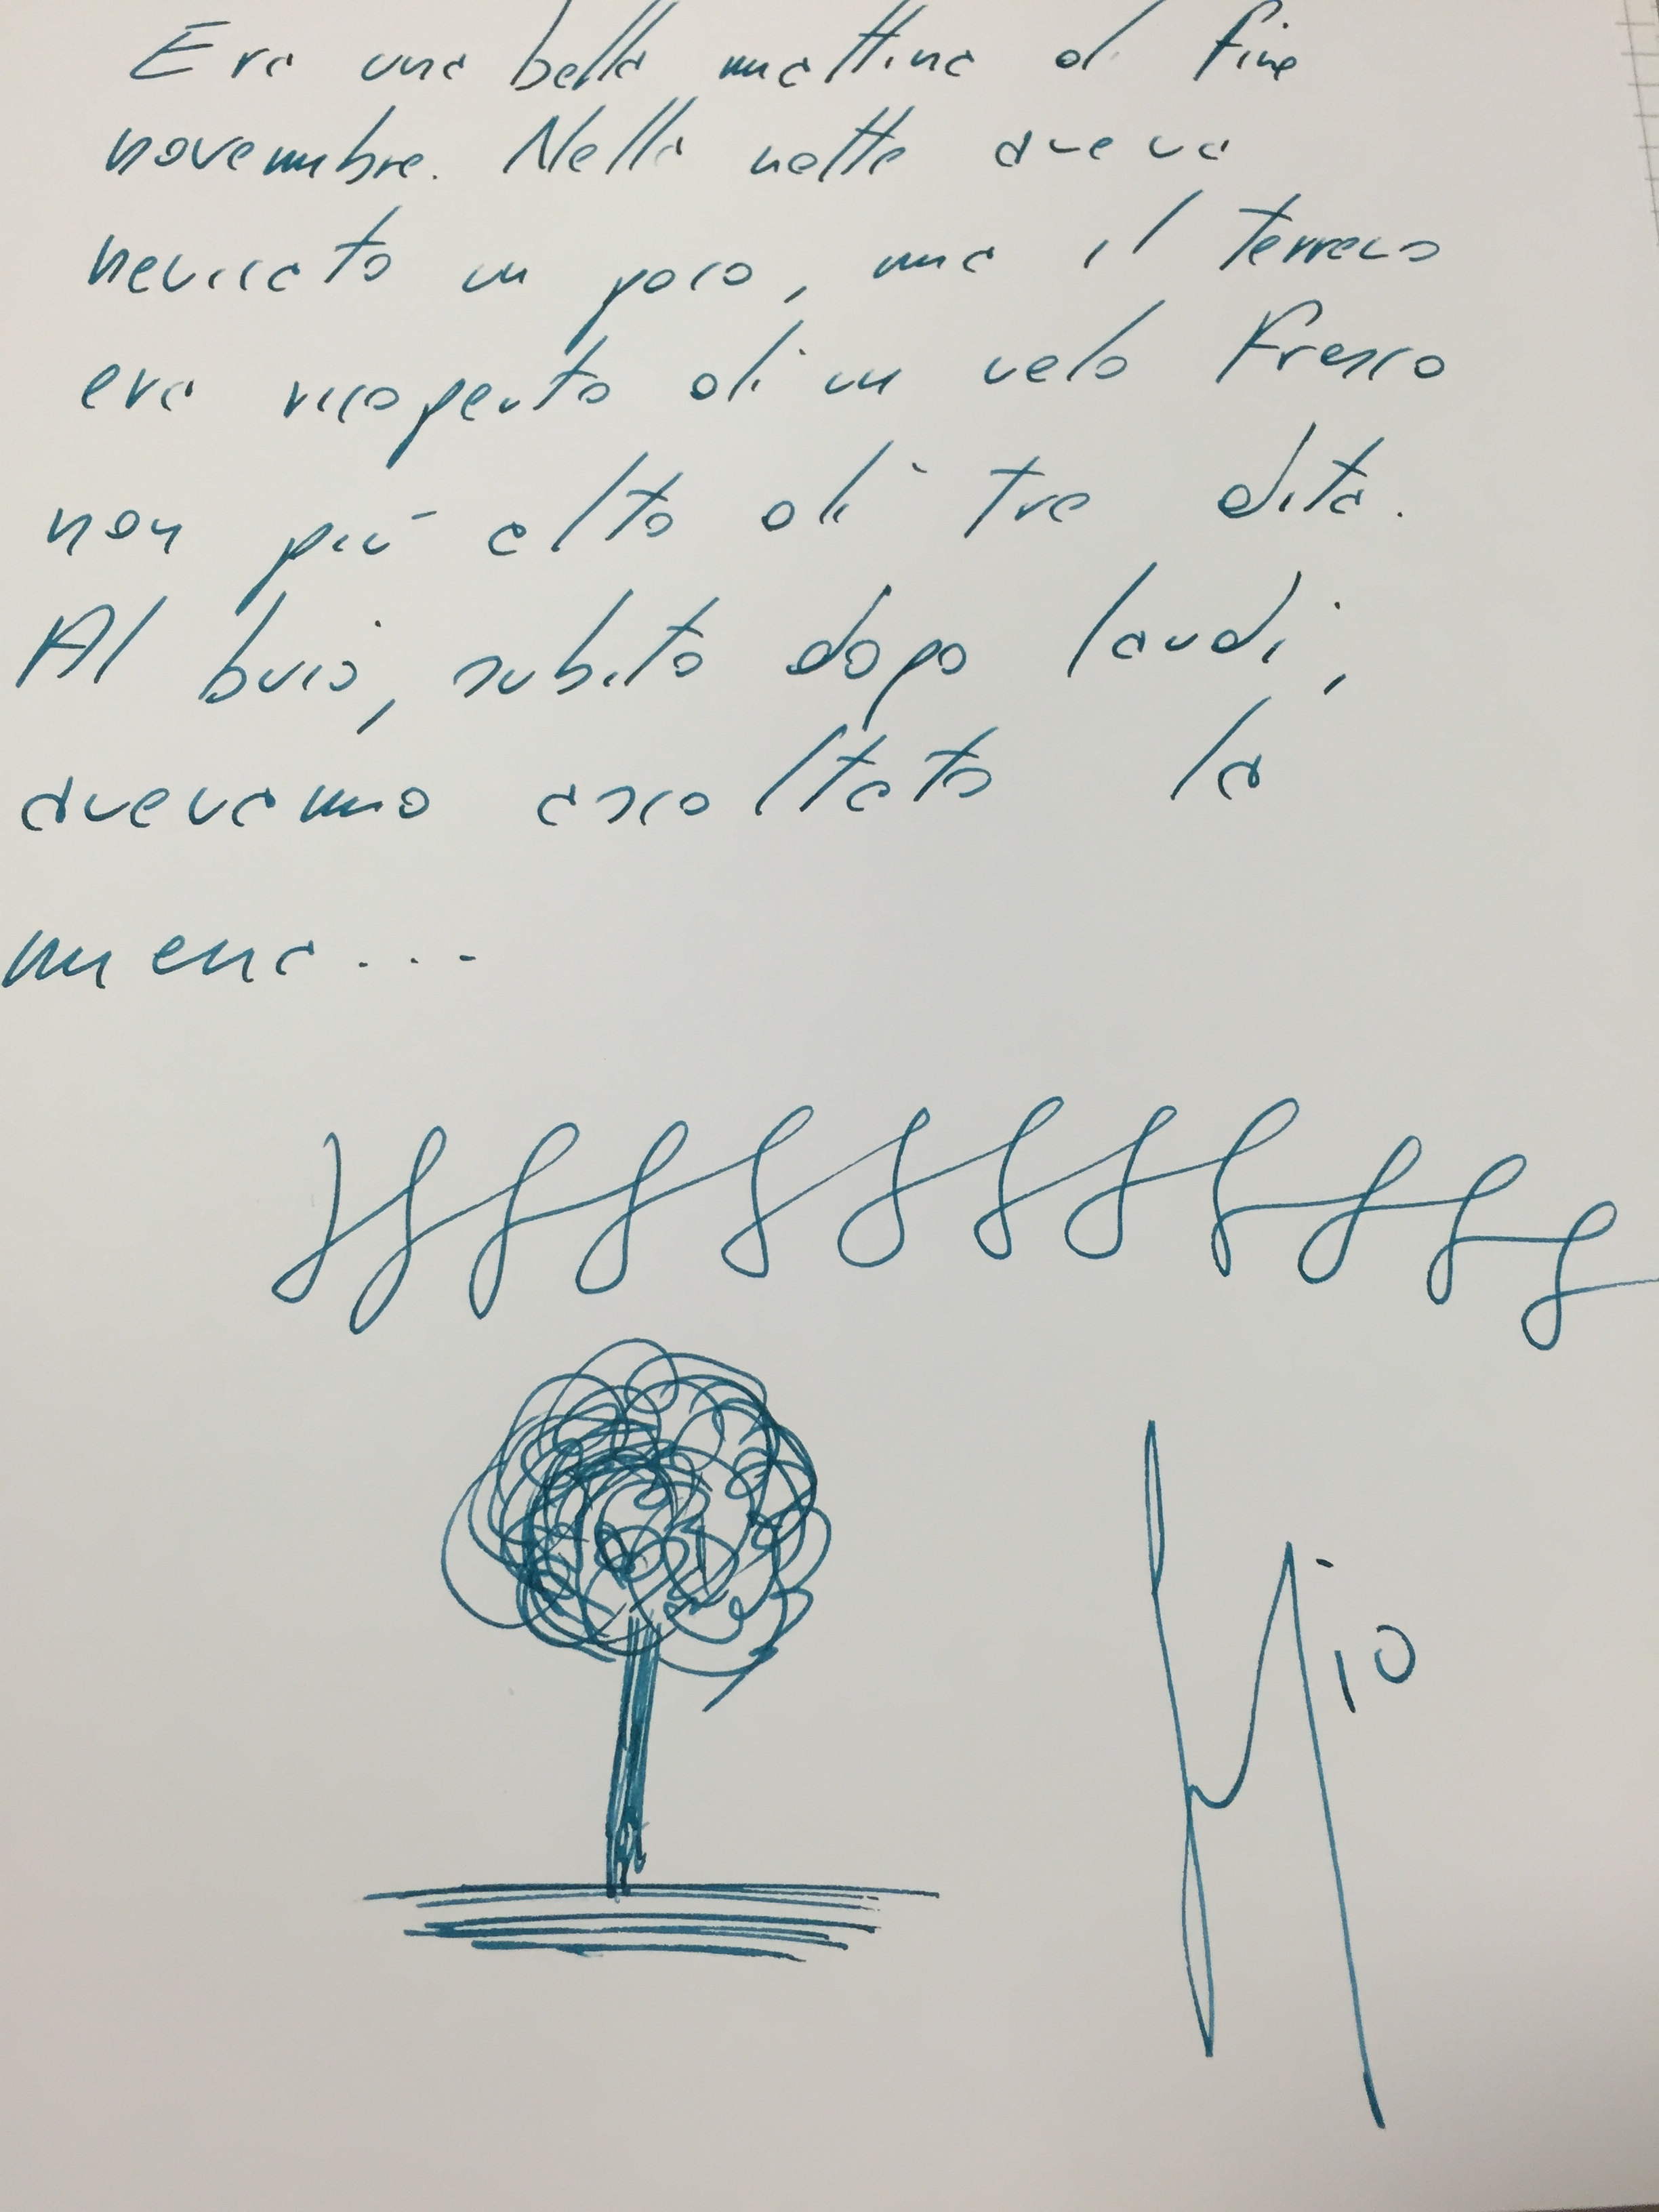 Era una bella mattina di fine
novembre. Nella notte aveva
nevicato un poco, ma il terreno
era ricoperto di un velo fresco
non più alto di tre dita.
Al buio, subito dopo laudi,
avevamo ascoltato la
messa...